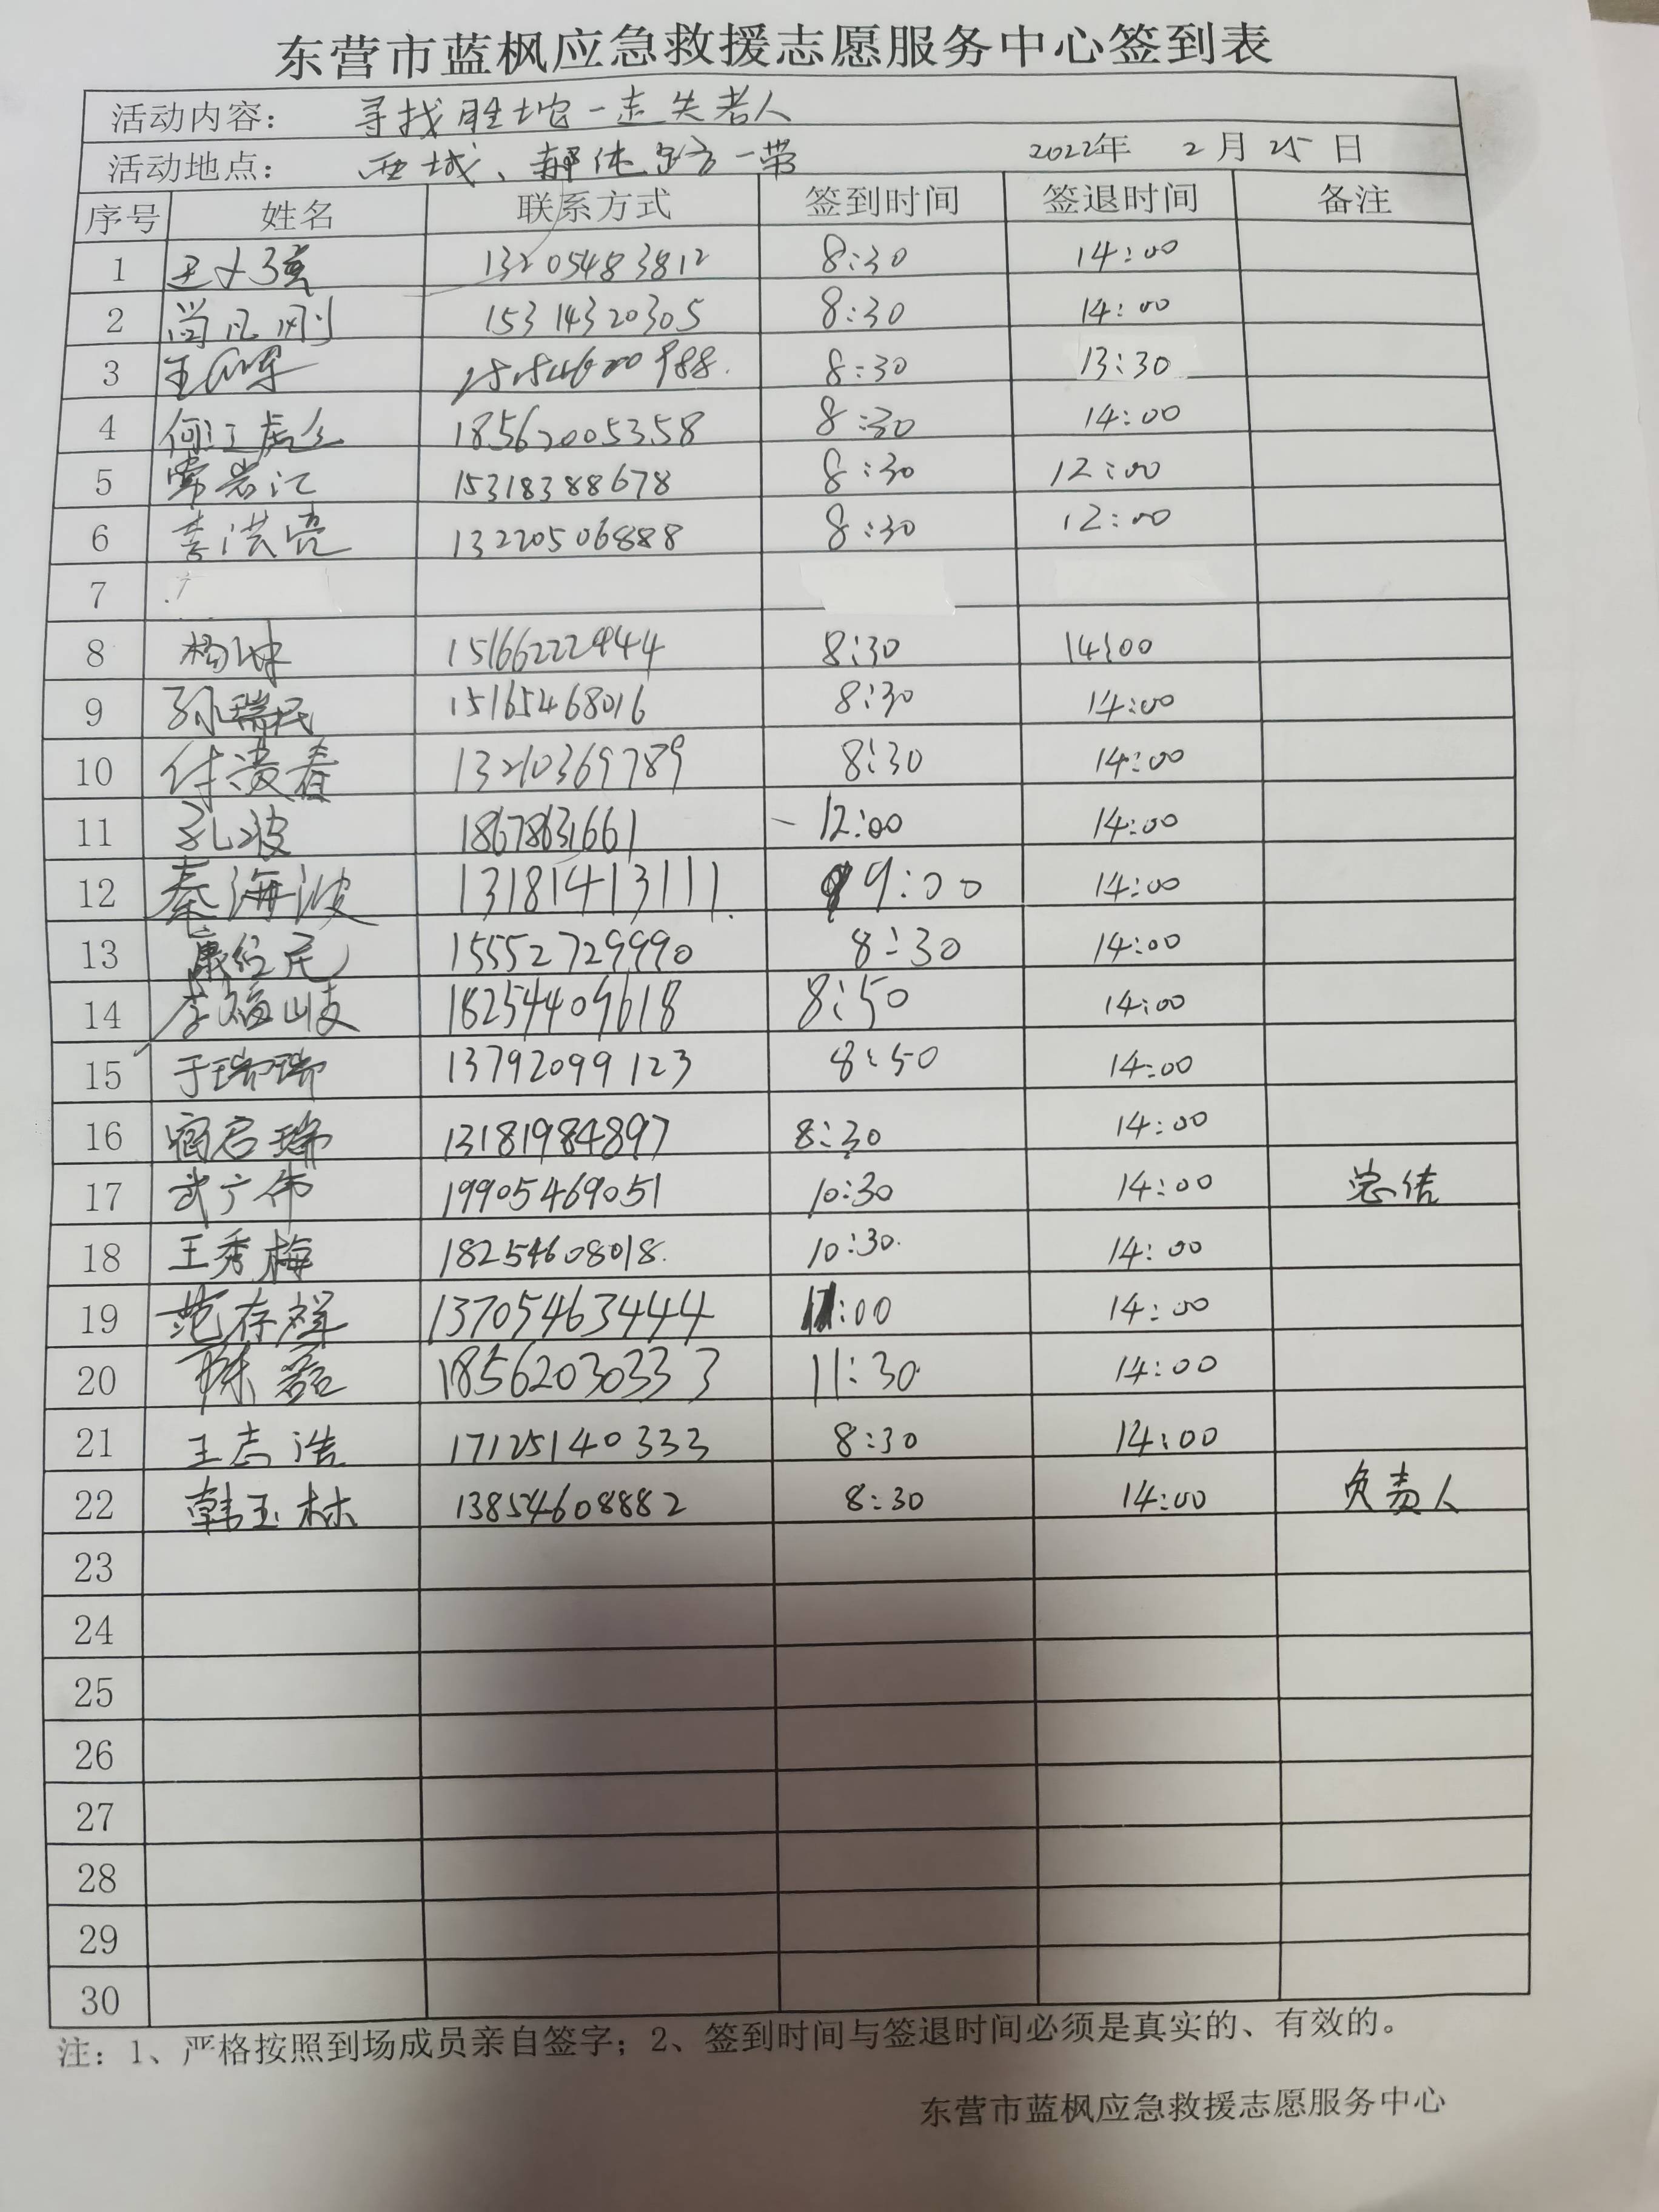 东营市蓝枫应急救援志愿服务中心签到表
活动内容： 寻找胜坨一走失老人
活动地点： 西城、 一带 2022年 2月 25日
序号 姓名 联系方式 签到时间 签退时间 备注
1 13205483812 8:30 14:00
2 尚凡刚 15314320305 8:30 14:00
3 8:30 13:30
4 18562005358 8:30 14:00
5 常岩江 15318388678 8:30 12:00
6 李洪亮 13220506888 8:30 12:00
7
8 杨坤 15166222944 8:30 14:00
9 孙瑞民 15165468016 8:30 14:00
10 付凌春 13210369789 8:30 14:00
11 孔波 18678631661 12:00 14:00
12 秦海波 13181413111 9:00 14:00
13 15552729990 8:30 14:00
14 李福岐 18254409618 8:50 14:00
15 于瑞瑞 13792099123 8:50 14:00
16 宿君瑞 13181984897 8:30 14:00
17 武广伟 19905469051 10:30 14:00 总结
18 王秀梅 18254608018 10:30 14:00
19 范存辉 13705463444 11:00 14:00
20 陈磊 18562030333 11:30 14:00
21 王志浩 17125140333 8:30 14:00
22 韩玉林 13854608882 8:30 14:00 负责人
23
24
25
26
27
28
29
30
注：1、严格按照到场成员亲自签字；2、签到时间与签退时间必须是真实的、有效的。
东营市蓝枫应急救援志愿服务中心